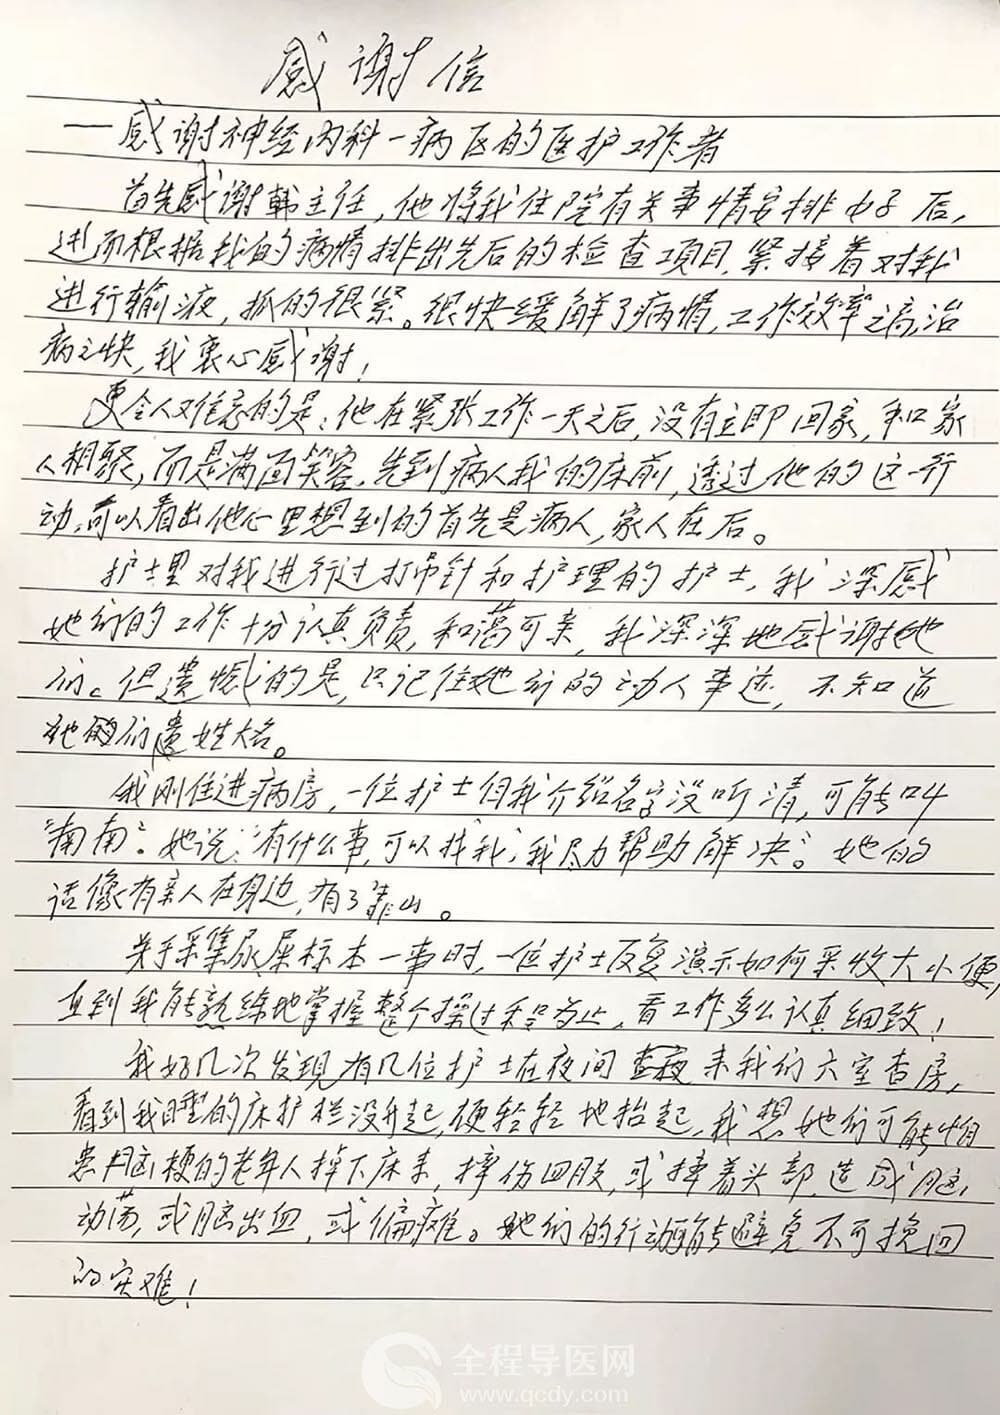 感谢信
——感谢神经内科一病区的医护工作者
首先感谢韩主任，他将我住院有关事情安排好后，
进而根据我的病情排出先后的检查项目，紧接着对我
进行输液，抓的很紧。很快缓解了病情，工作效率之高，治
病之快，我衷心感谢！
更令人难忘的是：他在紧张工作一天之后，没有立即回家，和家
人相聚，而是满面笑容，先到病人我的床前，透过他的这一行
动，可以看出他心里想到的首先是病人，家人在后。
护士里对我进行过打吊针和护理的护士，我深感
她们的工作十分认真负责，和蔼可亲，我深深地感谢她
们。但遗憾的是，只记住她们的动人事迹，不知道
她们遗姓大名。
我刚住进病房，一位护士自我介绍名字没听清，可能叫
“南南”。她说：“有什么事，可以找我，我尽力帮助解决”。她的
话像有亲人在身边，有了靠山。
关于采集尿屎标本一事时，一位护士反复演示如何采收大小便，
直到我能熟练地掌握整个操过程为止，看工作多么认真细致！
我好几次发现有几位护士在夜间来我们六室查房，
看到我睡的床护栏没升起，便轻轻地抬起，我想她们可能怕
患脑梗的老年人掉下床来，摔伤四肢，或摔着头部，造成脑
动荡，或脑出血，或偏瘫。她们的行动能避免不可挽回
的灾难！
全程导医网
www.qcdy.com